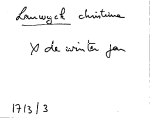 Lauwyck christina
X de winter jan
17/3/3